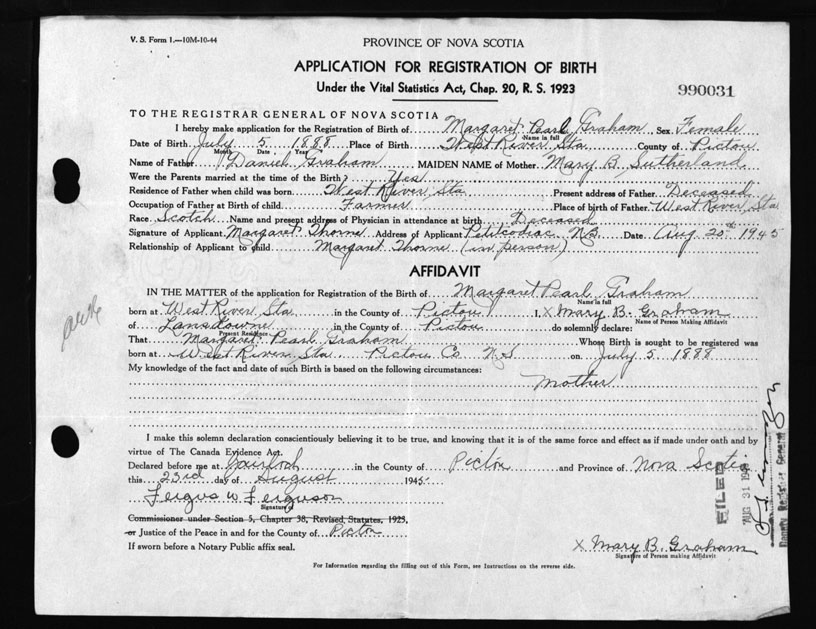 V. S. Form 1.—10M-10-44
PROVINCE OF NOVA SCOTIA
APPLICATION FOR REGISTRATION OF BIRTH
Under the Vital Statistics Act, Chap. 20, R. S. 1923
990031
TO THE REGISTRAR GENERAL OF NOVA SCOTIA
I hereby make application for the Registration of Birth of Margaret Pearl Graham Sex Female
Name in full
Date of Birth July 5 1888 Place of Birth West River Sta County of Pictou
Month Date Year
Name of Father Daniel Graham MAIDEN NAME of Mother Mary B. Sutherland
Were the Parents married at the time of the Birth? Yes
Residence of Father when child was born West River Sta Present address of Father Deceased
Occupation of Father at Birth of child Farmer Place of birth of Father West River Sta
Race Scotch Name and present address of Physician in attendance at birth Deceased
Signature of Applicant Margaret Thorne Address of Applicant Petitcodiac N.B. Date Aug 20th 1945
Relationship of Applicant to child Margaret Thorne (in person)
AFFIDAVIT
IN THE MATTER of the application for Registration of the Birth of Margaret Pearl Graham
Name in full
born at West River Sta in the County of Pictou I, x Mary B. Graham
Name of Person Making Affidavit
of Lansdowne in the County of Pictou do solemnly declare:
Present Residence
That Margaret Pearl Graham Whose Birth is sought to be registered was
born at West River Sta. Pictou Co. N.S. on July 5 1888
My knowledge of the fact and date of such Birth is based on the following circumstances:
Mother
I make this solemn declaration conscientiously believing it to be true, and knowing that it is of the same force and effect as if made under oath and by
virtue of The Canada Evidence Act.
Declared before me at Gairloch in the County of Pictou and Province of Nova Scotia
this 23rd day of August 1945
Fergus W Ferguson
Signature of
Commissioner under Section 5, Chapter 38, Revised Statutes, 1923,
or Justice of the Peace in and for the County of Pictou
If sworn before a Notary Public affix seal.
x Mary B. Graham
Signature of Person making Affidavit
For Information regarding the filling out of this Form, see Instructions on the reverse side.
FILED
AUG 31 194
Deputy Registrar General